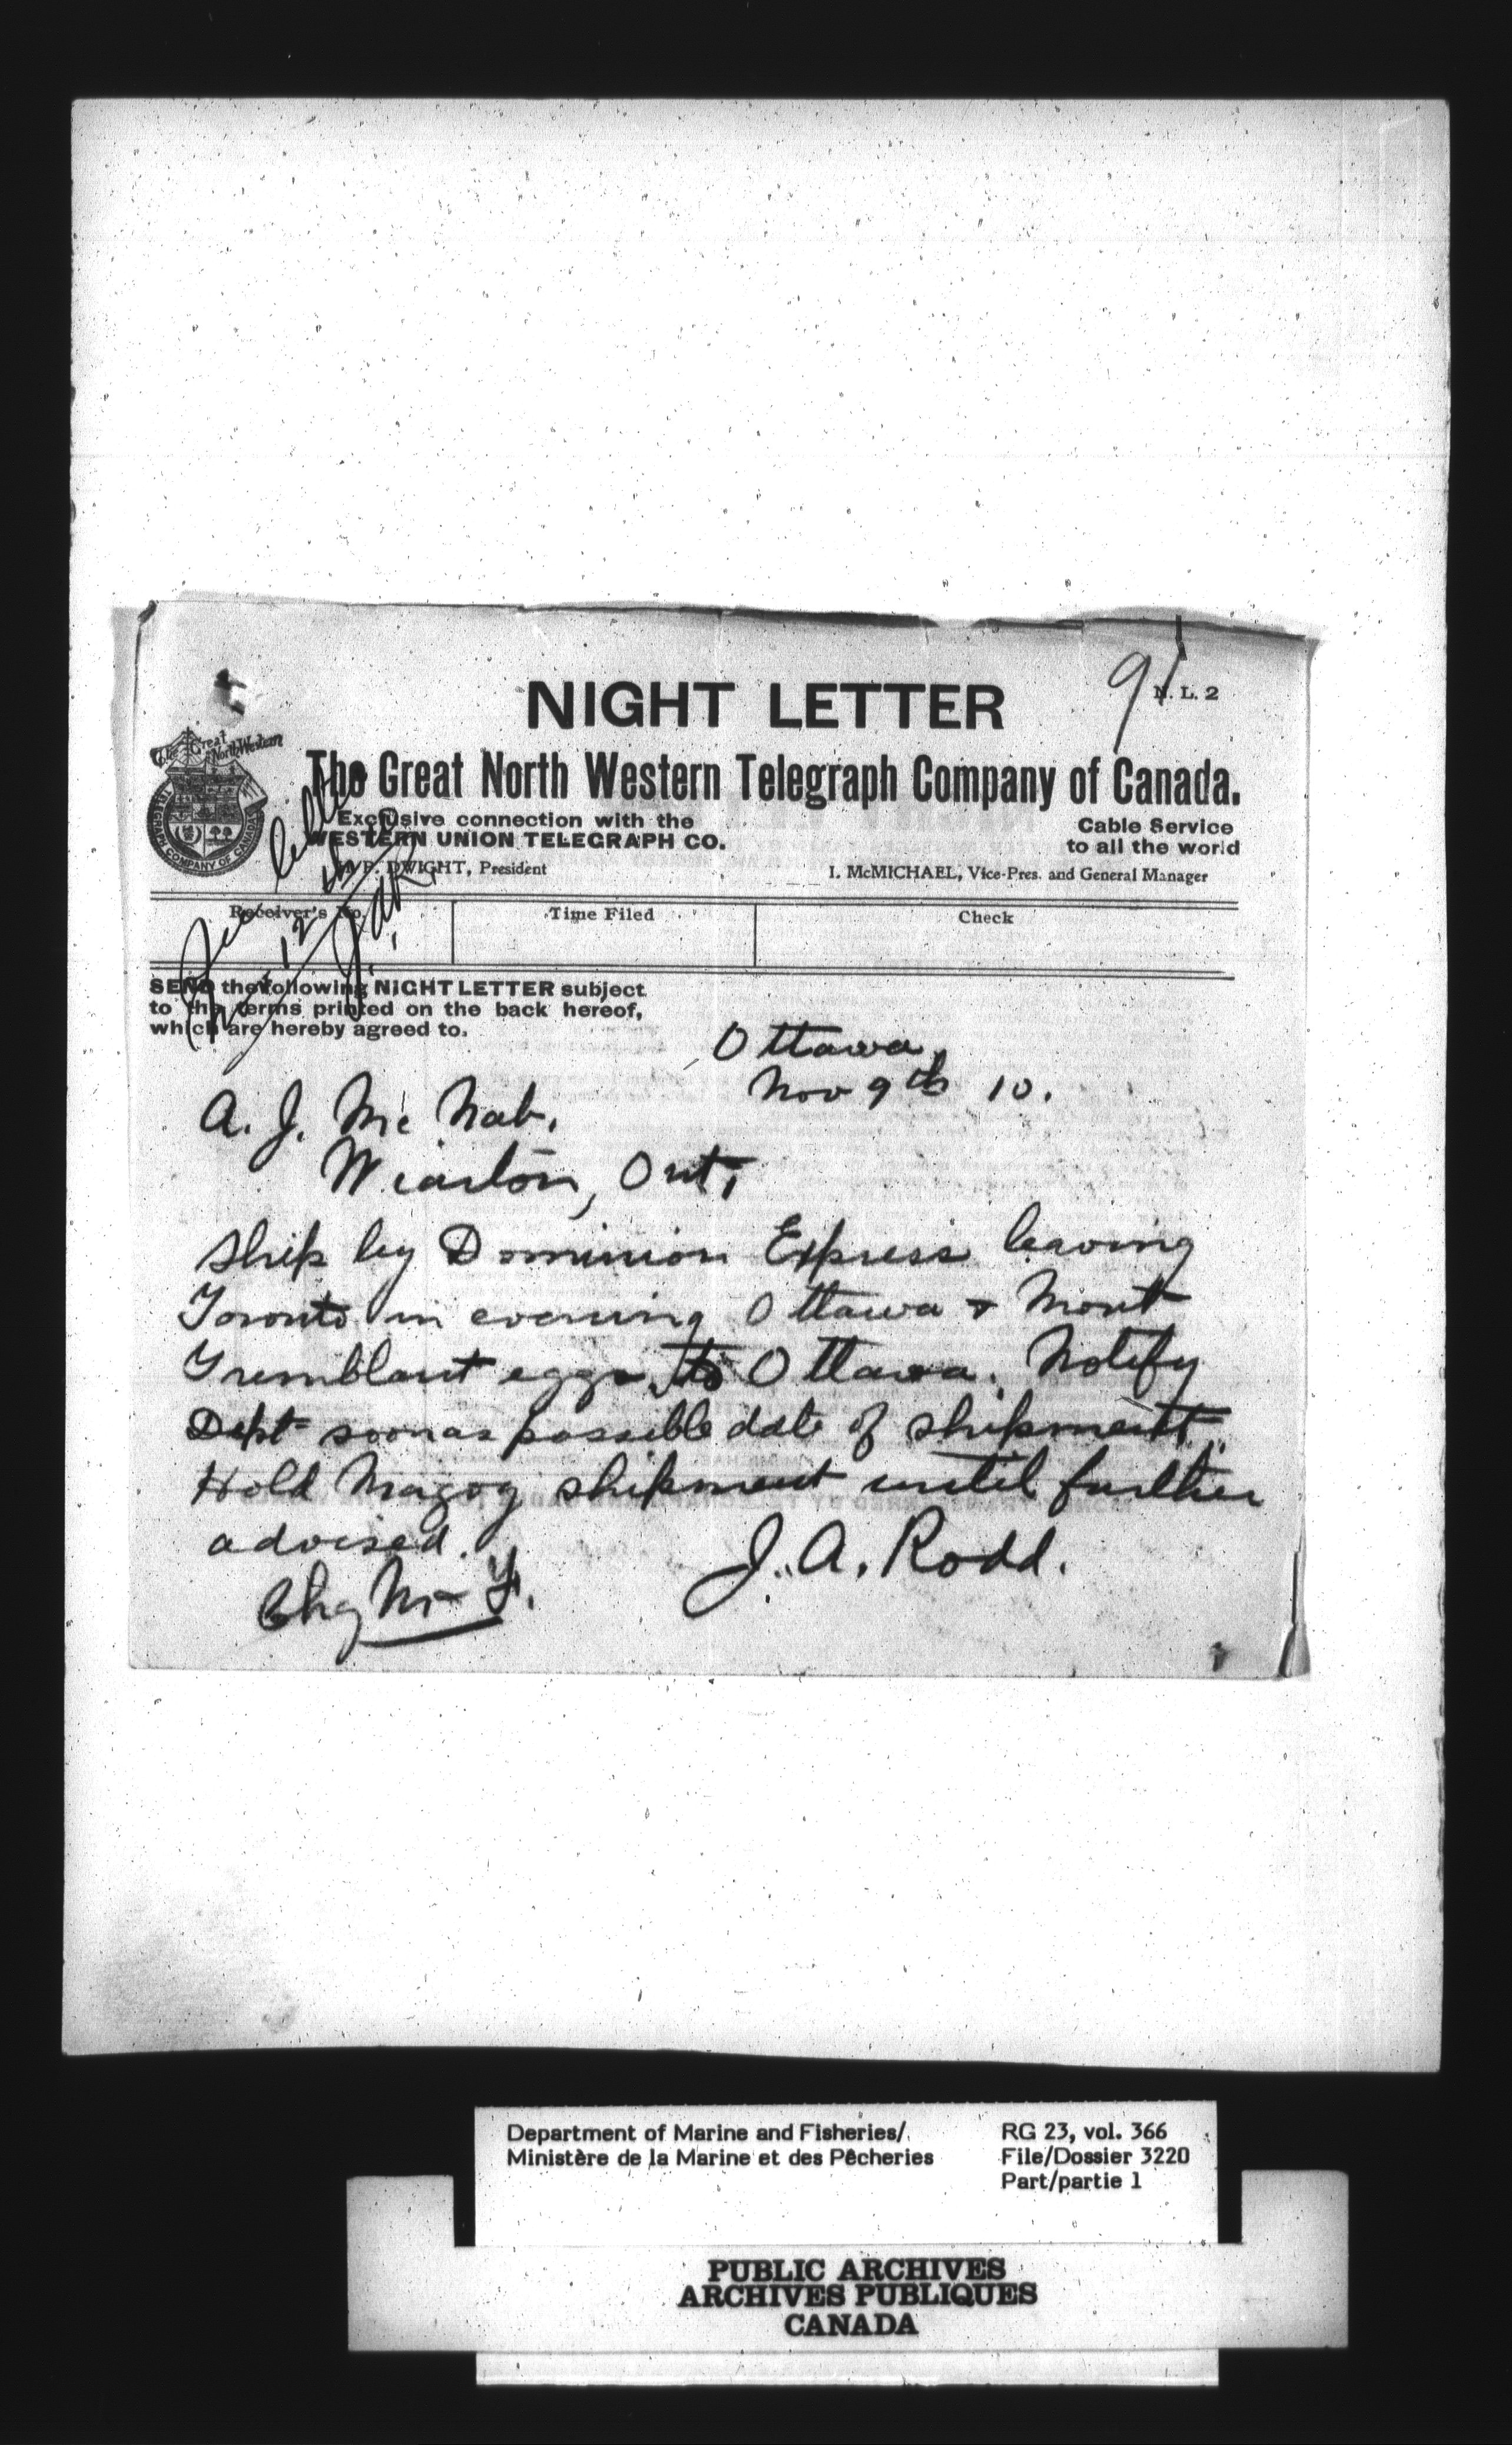 91
N. L. 2
NIGHT LETTER
The Great North Western
TELEGRAPH COMPANY OF CANADA
The Great North Western Telegraph Company of Canada.
Exclusive connection with the
WESTERN UNION TELEGRAPH CO.
Cable Service
to all the world
H. P. DWIGHT, President
I. McMICHAEL, Vice-Pres. and General Manager
Receiver's No.
Time Filed
Check
SEND the following NIGHT LETTER subject
to the terms printed on the back hereof,
which are hereby agreed to.
Ottawa,
Nov 9th 10.
A. J. McNab.
Wiarton, Ont,
Ship by Dominion Express leaving
Toronto in evening Ottawa & Mont
Tremblant eggs to Ottawa. Notify
Dept soon as possible date of shipment.
Hold Magog shipment until further
advised.
J. A. Rodd.
Chg M & F.
Department of Marine and Fisheries/
Ministère de la Marine et des Pêcheries
RG 23, vol. 366
File/Dossier 3220
Part/partie 1
PUBLIC ARCHIVES
ARCHIVES PUBLIQUES
CANADA